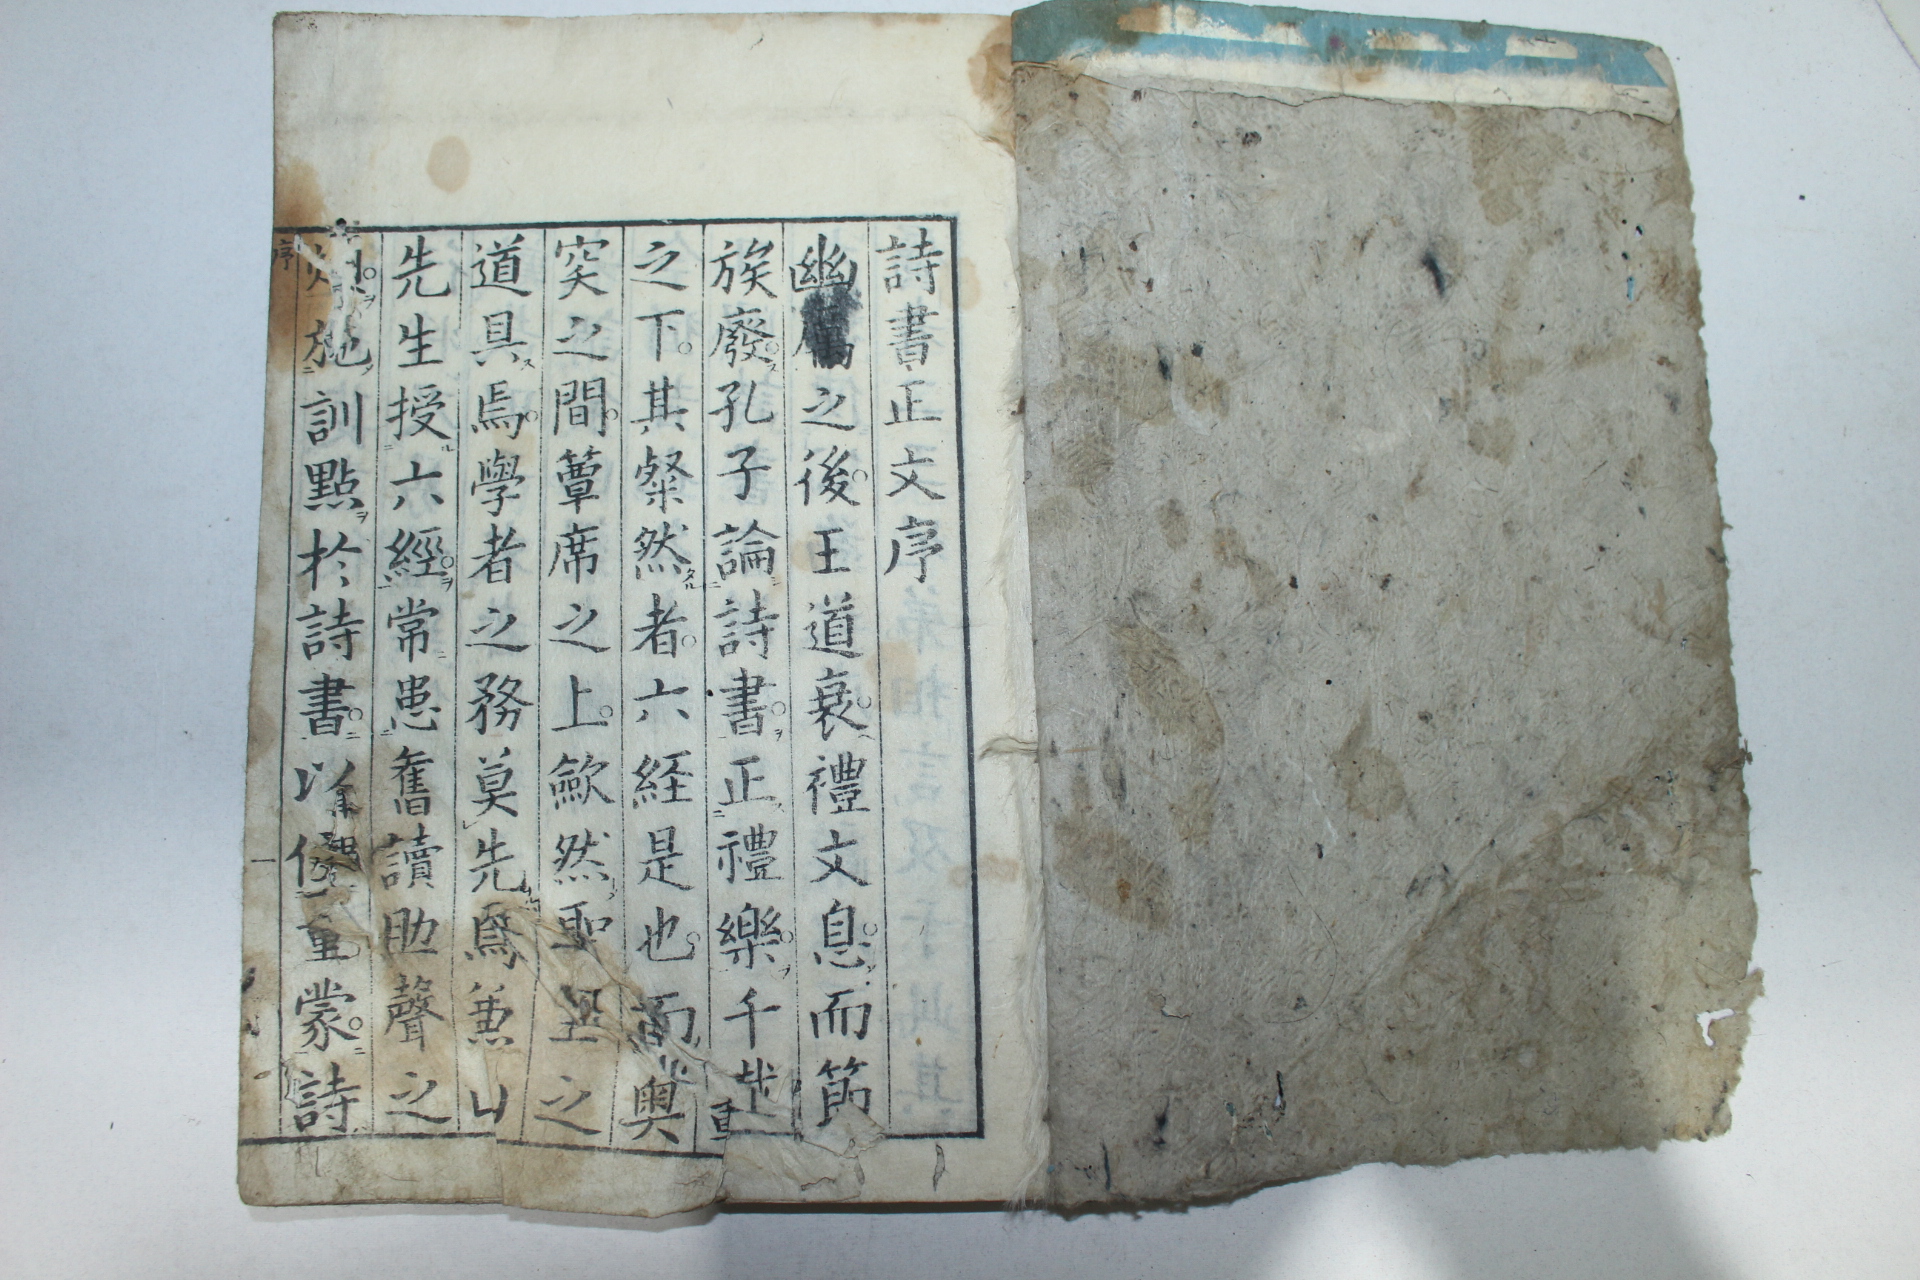 詩書正文序
幽厲之後王道衰禮文息而節
族廢孔子論詩書正禮樂千
之下其粲然者六経是也而奧
窔之間蕇席之上歛然聖王之
道具焉學者之務莫先焉兼山
先生授六經常患奮讀助聲之
施訓點於詩書以便童蒙詩
序
一